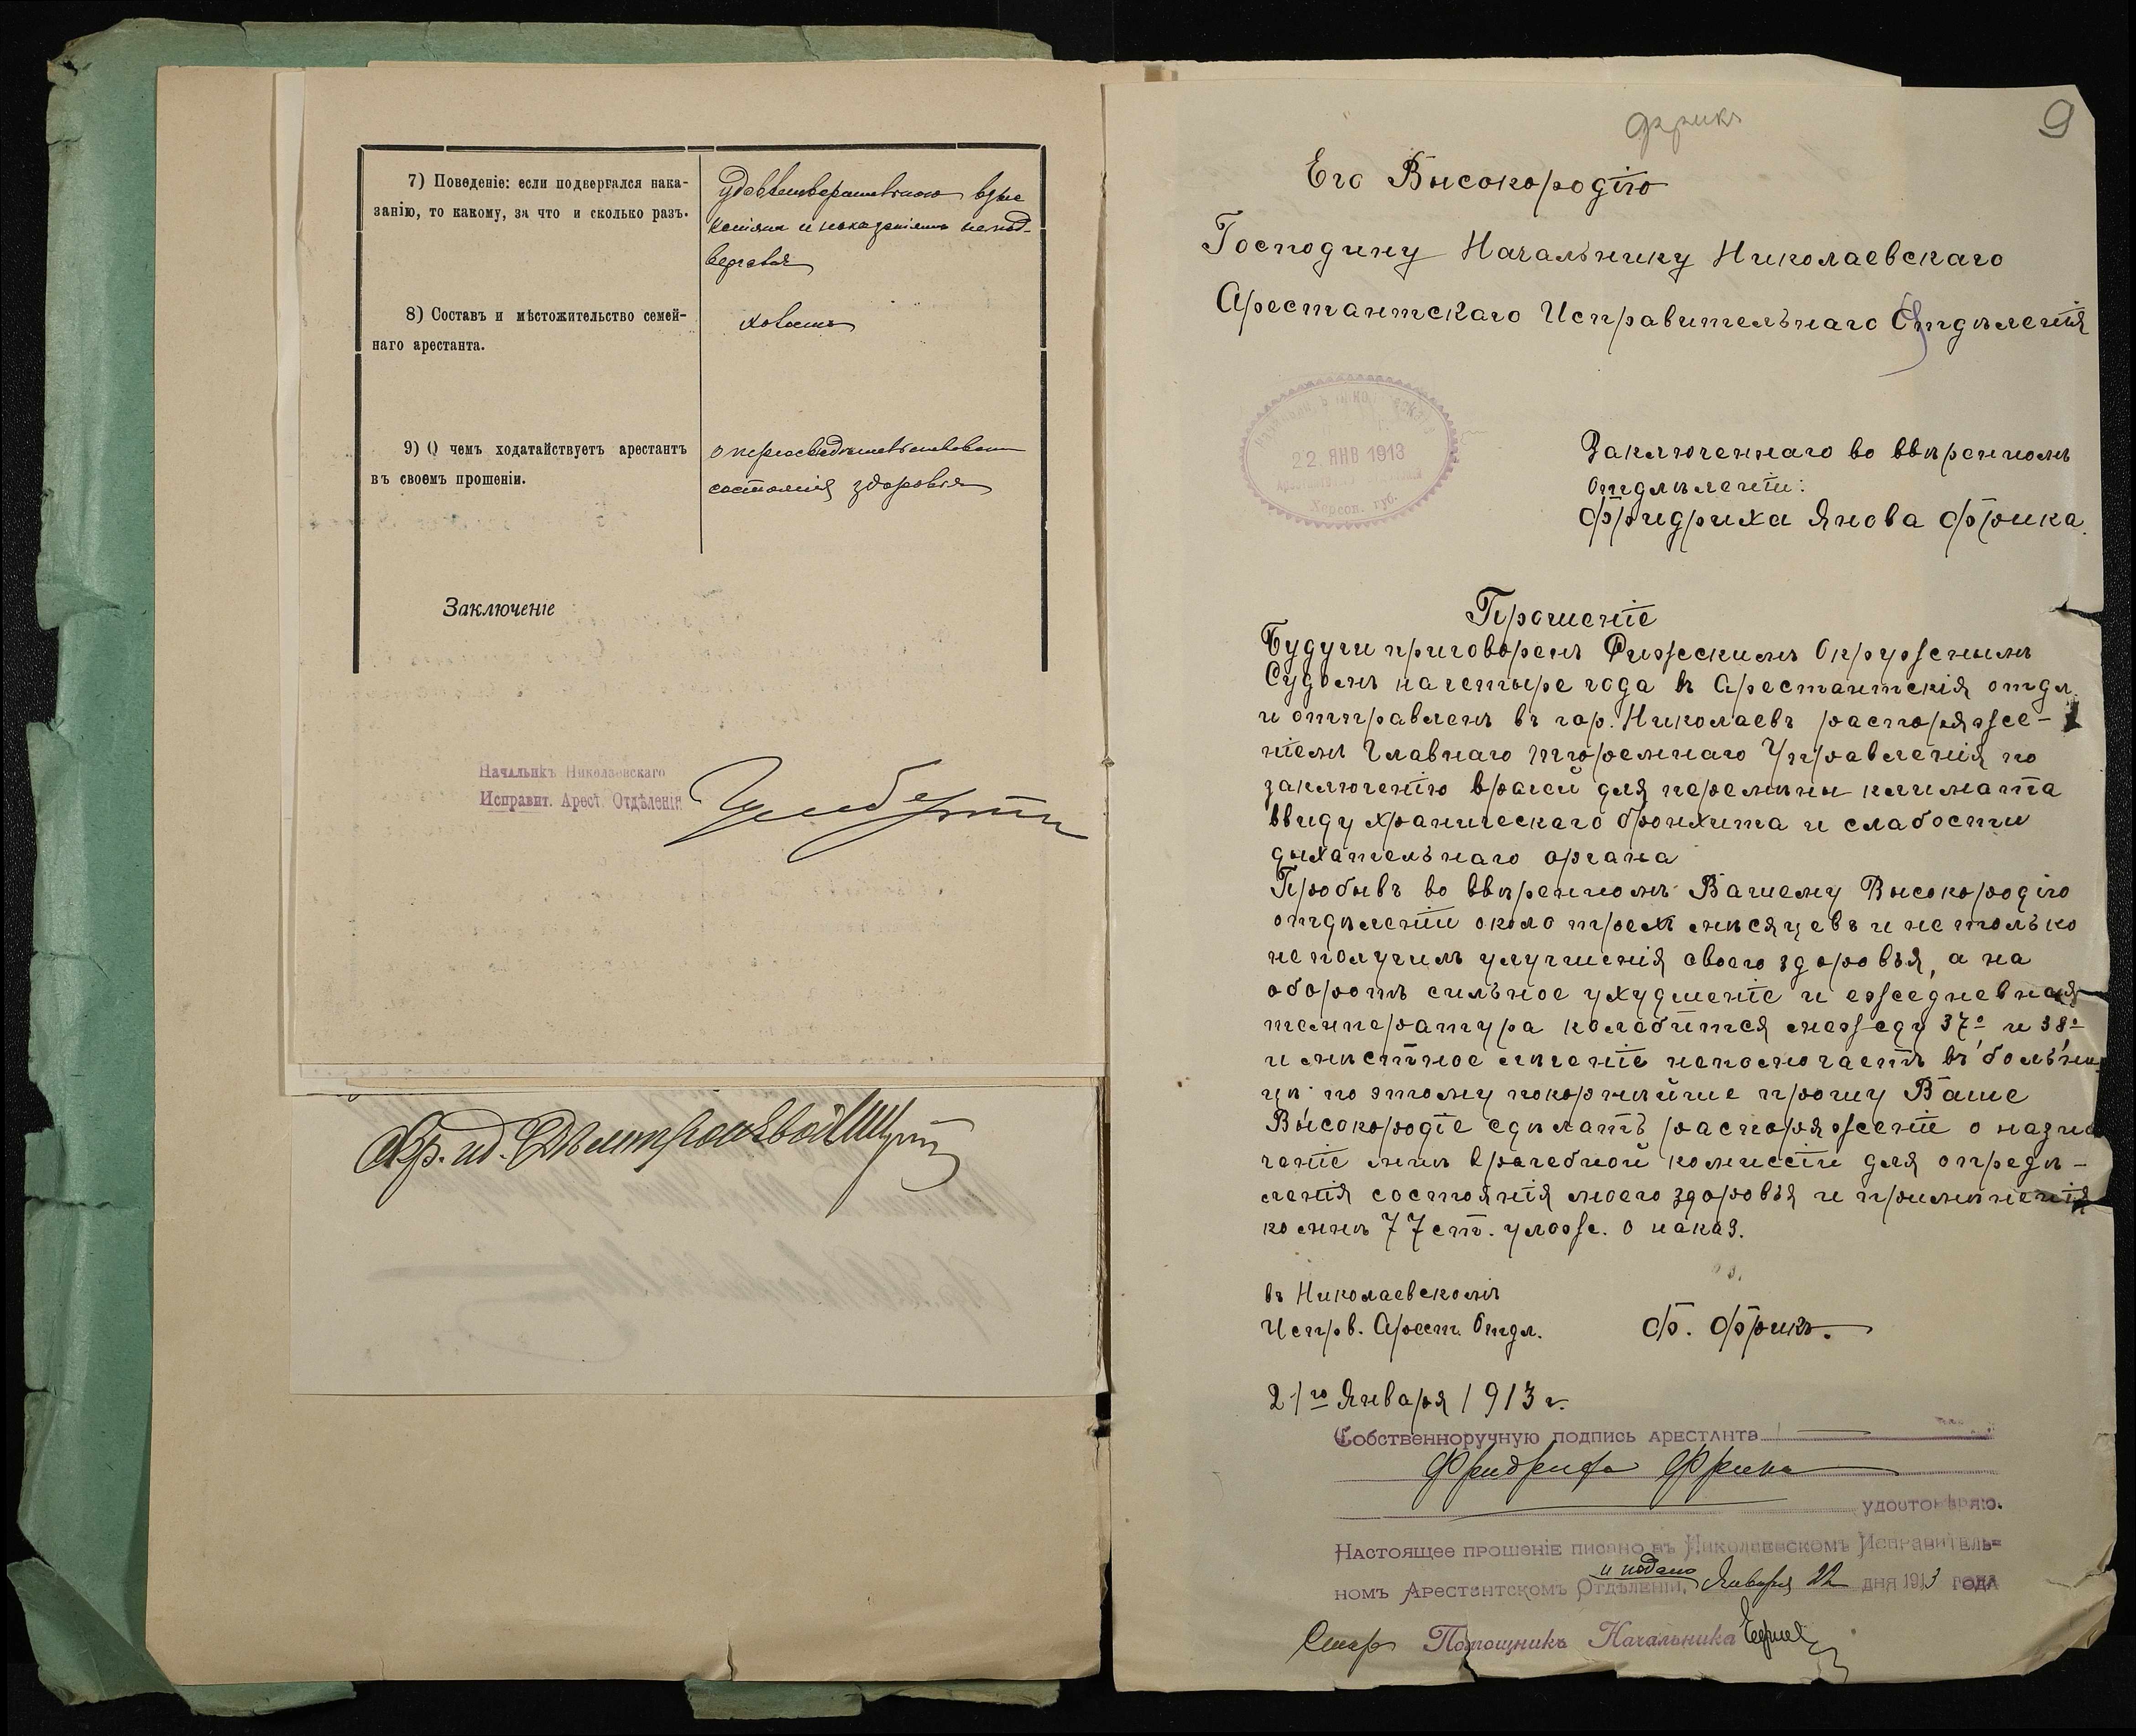 7) Поведеніе: если подвергался нака-
занію, то какому, за что и сколько разъ.
удовлетворительное взыс
каніямъ и наказаніямъ непод-
вергался
8) Составъ и мѣстожительство семей-
наго арестанта.
холостъ
9) О чемъ ходатайствуетъ арестантъ
въ своемъ прошеніи.
о переосвидѣтельствованіи
состоянія здоровья
Заключеніе
Начальникъ Николаевскаго
Исправит. Арест. Отдѣленія
9
Фрикъ
Его Высокородію
Господину Начальнику Николаевскаго
Арестантскаго Исправительнаго Отдѣленія
22. ЯНВ 1913
Херсон. губ.
Заключеннаго во ввѣренномъ
отдѣленіи:
Фридриха Янова Фрика.
Прошеніе
Будучи приговоренъ Рижскимъ Окружнымъ
Судомъ на четыре года въ Арестантскія отдл.
и отправленъ въ гор. Николаевъ распоряже-
ніемъ Главнаго Тюремнаго Управленія по
заключенію врачей для перемѣны климата
ввиду храническаго бронхита и слабости
дыхательнаго органа
Пробывъ во ввѣренномъ Вашему Высокородію
отдѣленіи около трехъ мѣсяцевъ и не только
неполучилъ улучшенія своего здоровья, а на
оборотъ сильное ухудшеніе и ежедневная
температура колебится между 37º и 38º
и мѣстное лѣченіе непомогаетъ въ больни-
цѣ по этому покорнѣйше прошу Ваше
Высокородіе сдѣлать распоряженіе о назна
ченіе мнѣ врачебной комиссіи для опредѣ-
ленія состоянія моего здоровья и примѣненія
ко мнѣ 77 ст. улож. о наказ.
въ Николаевскомъ
Испрв. Арест. Отдл.
Ф. Фрикъ.
21го Января 1913 г.
Собственноручную подпись арестанта
Фридриха Фрика
удостовѣряю.
Настоящее прошеніе писано въ Николаевскомъ Исправитель=
и подано
номъ Арестантскомъ Отдѣленіи, Января 22 дня 1913 года
Старш Помощникъ Начальника